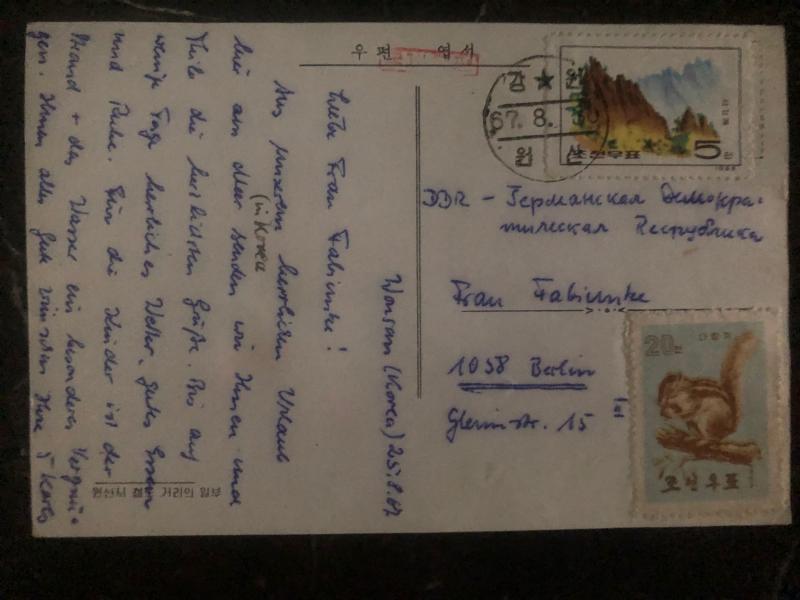 우편엽서
Wonsan (Korea) 25.8.67
Liebe Frau Fabiunke!
Aus unserem herrlichen Urlaub
hier am Meer senden wir Ihnen und
(in Korea)
Thilo die herzlichsten Grüße. Bis auf
wenige Tage herrliches Wetter, gutes Essen
und Ruhe. Für die Kinder ist der
Strand + das Wasser ein besonderes Vergnü-
gen. Ihnen alles Gute wünschen Ihre 5
원산시 거리의 일부
원
67.8.
5
20
다람쥐
조선우표
DDR - Германская Демокра-
тическая Республика
Frau Fabiunke
1058 Berlin
Gleimstr. 15